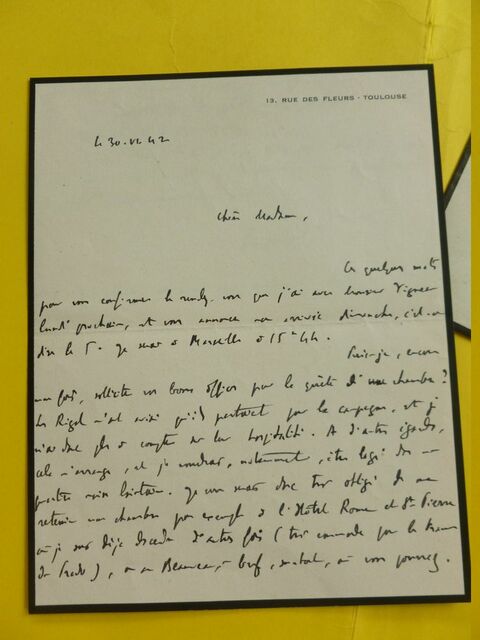 13, RUE DES FLEURS - TOULOUSE
le 30.VI.42
Chère Madame,
Ces quelques mots
pour vous confirmer le rendez-vous que j'ai avec Monsieur
lundi prochain, et vous annoncer mon arrivée dimanche, c'est-à-
dire le 5. Je serai à Marseille à 15h44.
Puis-je, encore
une fois, solliciter vos bons offices pour la quête d'une chambre?
Les Rigal m'ont avisé qu'ils partaient pour la campagne, et je
n'ai donc plus à compter sur leur hospitalité. A d'autres égards,
cela m'arrange, et je voudrais, notamment, être logé dans un
quartier moins lointain. Je vous serais donc très obligé de me
retenir une chambre par exemple à l'Hôtel Rome et St Pierre
où je suis déjà descendu d'autres fois (très commode par le tramway
du Prado), ou au Beauvau, - bref, où vous pourrez.